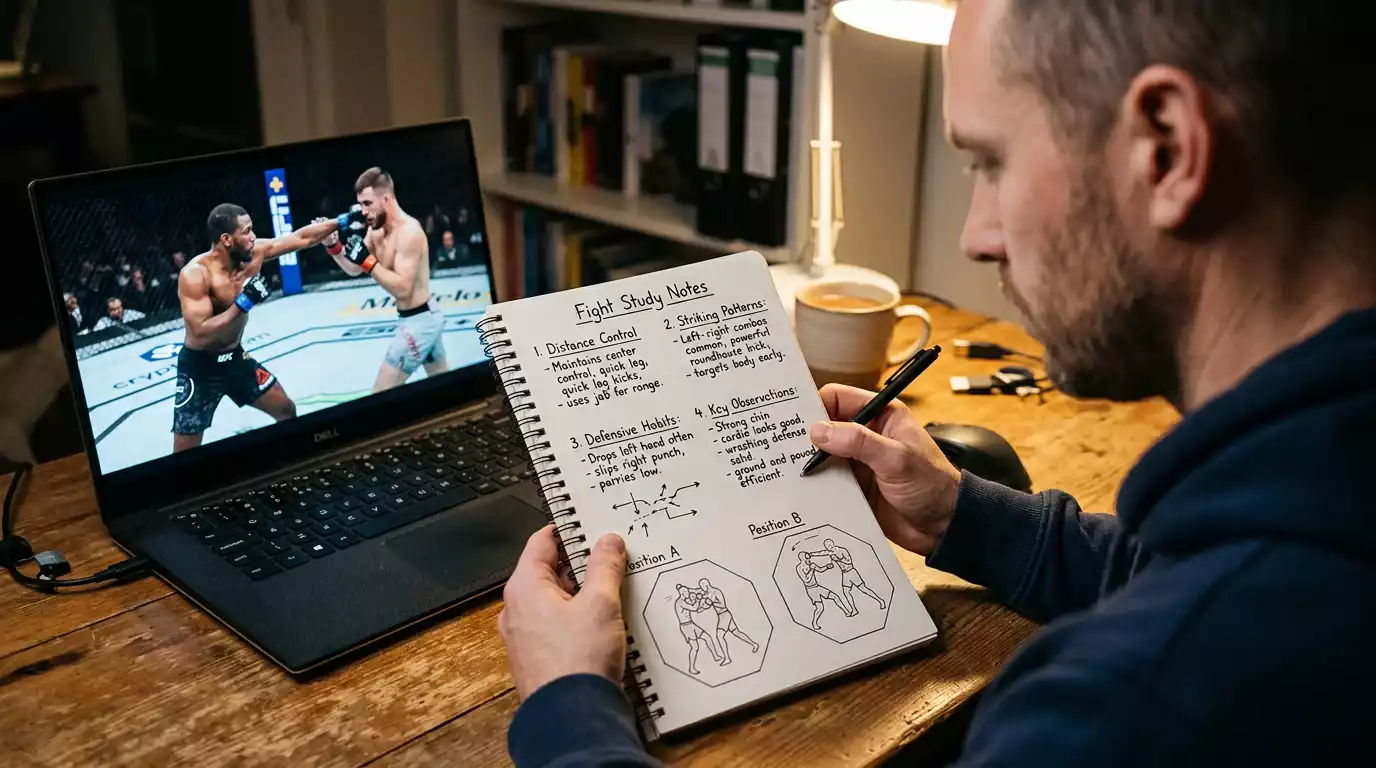 Fight Study Notes
1. Distance Control
- Maintains center
control, quick leg,
quick leg kicks,
- uses jab for range.
2. Striking Patterns:
- Left-right combos
common, powerful
roundhouse kick,
- targets body early.
3. Defensive Habits:
- Drops left hand often
- slips right punch,
parries low.
4. Key Observations:
- Strong chin
- cardie looks good,
- wrashing defense
salid.
- ground and
efficient.
osition A
Position B
DELL
UFC
cryp